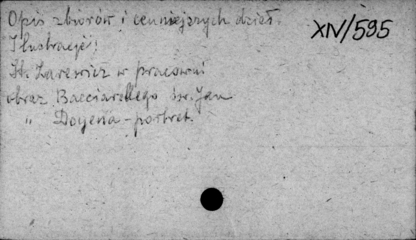 Opis zbiorów i cenniejszych dzieł.
XIV/595
Ilustracje:
St. Zarewicz w pracowni
obraz Bacciarellego św. Jan
" Doyena - portret.